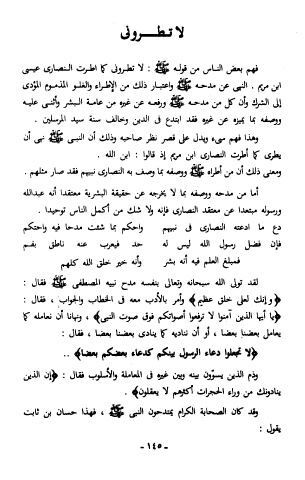 لا تطرونى
فهم بعض الناس من قوله ﷺ : لا تطرونى كما اطرت النصارى عيسى
ابن مريم . النهى عن مدحه ﷺ واعتبار ذلك من الإطراء والغلو المذموم المؤدى
إلى الشرك وأن كل من مدحه ﷺ ورفعه عن غيره من عامة البشر وأثنى عليه
ووصفه بما يميزه عن غيره فقد ابتدع فى الدين وخالف سنة سيد المرسلين .
وهذا فهم سىء ويدل على قصر نظر صاحبه وذلك أن النبى ﷺ نهى أن
يطرى كما أطرت النصارى ابن مريم إذ قالوا : ابن الله .
ومعنى ذلك أن من أطراه ﷺ ووصفه بما وصف به النصارى نبيهم فقد صار مثلهم .
أما من مدحه ووصفه بما لا يخرجه عن حقيقة البشرية معتقدا أنه عبدالله
ورسوله مبتعدا عن معتقد النصارى فإنه ولا شك من أكمل الناس توحيدا .
دع ما ادعته النصارى فى نبيهم واحكم بما شئت مدحا فيه واحتكم
فإن فضل رسول الله ليس له حد فيعرب عنه ناطق بفم
فمبلغ العلم فيه أنه بشر وأنه خير خلق الله كلهم
لقد تولى الله سبحانه وتعالى بنفسه مدح نبيه المصطفى ﷺ فقال :
﴿وإنك لعلى خلق عظيم﴾ ، وأمر بالأدب معه فى الخطاب والجواب ، فقال :
﴿يا أيها الذين آمنوا لا ترفعوا أصواتكم فوق صوت النبى﴾ ، ونهانا أن نعامله كما
يعامل بعضنا بعضا ، أو أن نناديه كما ينادى بعضنا بعضا ، فقال :
﴿لا تجعلوا دعاء الرسول بينكم كدعاء بعضكم بعضا﴾ ..
وذم الذين يسوّون بينه وبين غيره فى المعاملة والأسلوب فقال : ﴿إن الذين
ينادونك من وراء الحجرات أكثرهم لا يعقلون﴾ .
وقد كان الصحابة الكرام يمتدحون النبى ﷺ ، فهذا حسان بن ثابت
يقول :
- ١٤٥ -